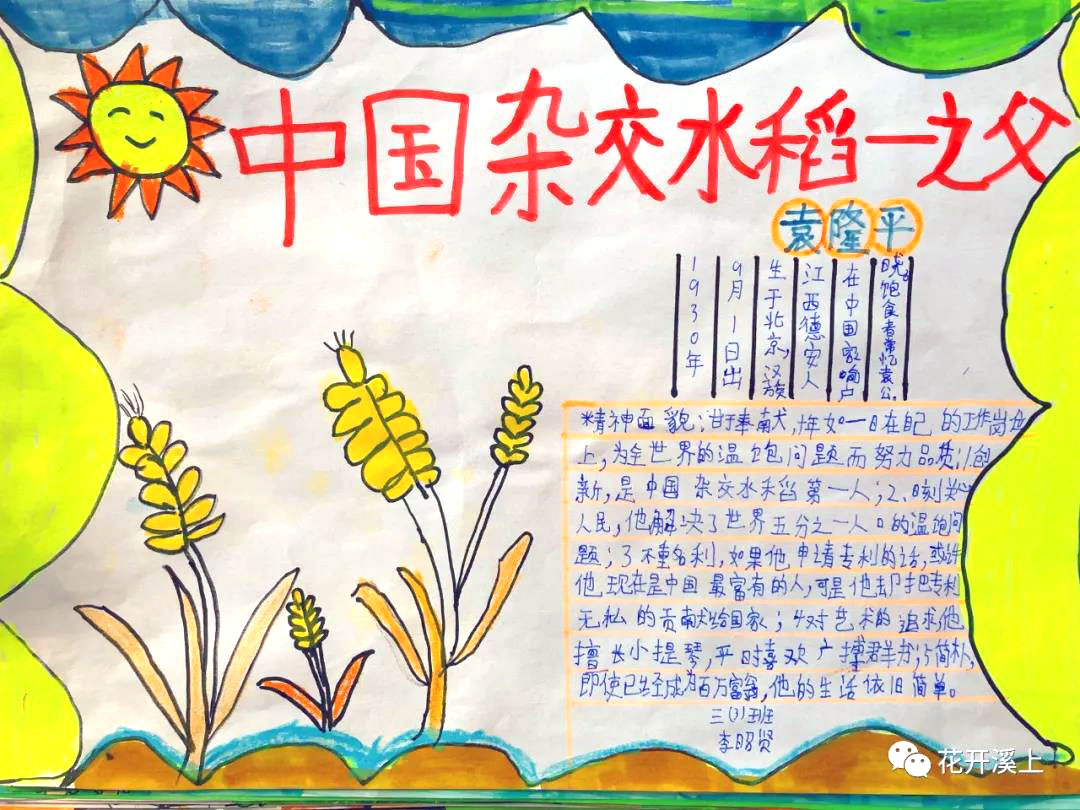 中国杂交水稻一之父
袁隆平
1930年
9月1日出
生于北京，汉族
江西德安人
在中国家喻户
晓。饱食者常忆袁公.
精神面貌：甘于奉献，年如一日在自己的工作岗位
上，为全世界的温饱问题而努力品质1、创
新，是中国杂交水稻第一人；2、时刻关心
人民，他解决了世界五分之一人口的温饱问
题；3不重名利，如果他申请专利的话，或许
他现在是中国最富有的人，可是他却把专利
无私的贡献给国家；4对艺术的追求他
擅长小提琴，平时喜欢广博群书；5简朴，
即使已经成为百万富翁，他的生活依旧简单。
三(3)班
李昭贤
花开溪上